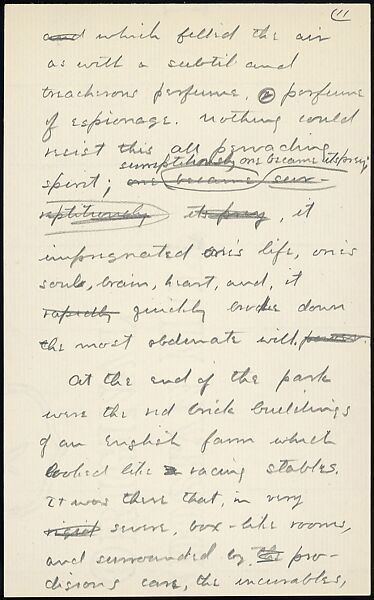 11
and which filled the air
as with a subtil and
treacherous perfume, a perfume
of espionage. Nothing could
resist this all pervading
surreptitiously one became its prey;
spirit; one became sur-
reptitiously its prey, it
impregnated one's life, one's
soul, brain, heart, and, it
rapidly quickly broke down
the most obdurate will.
At the end of the park
were the red brick buildings
of an English farm which
looked like a racing stables.
It was there that, in very
rigid severe, box-like rooms,
and surrounded by the pro-
digious care, the incurables,